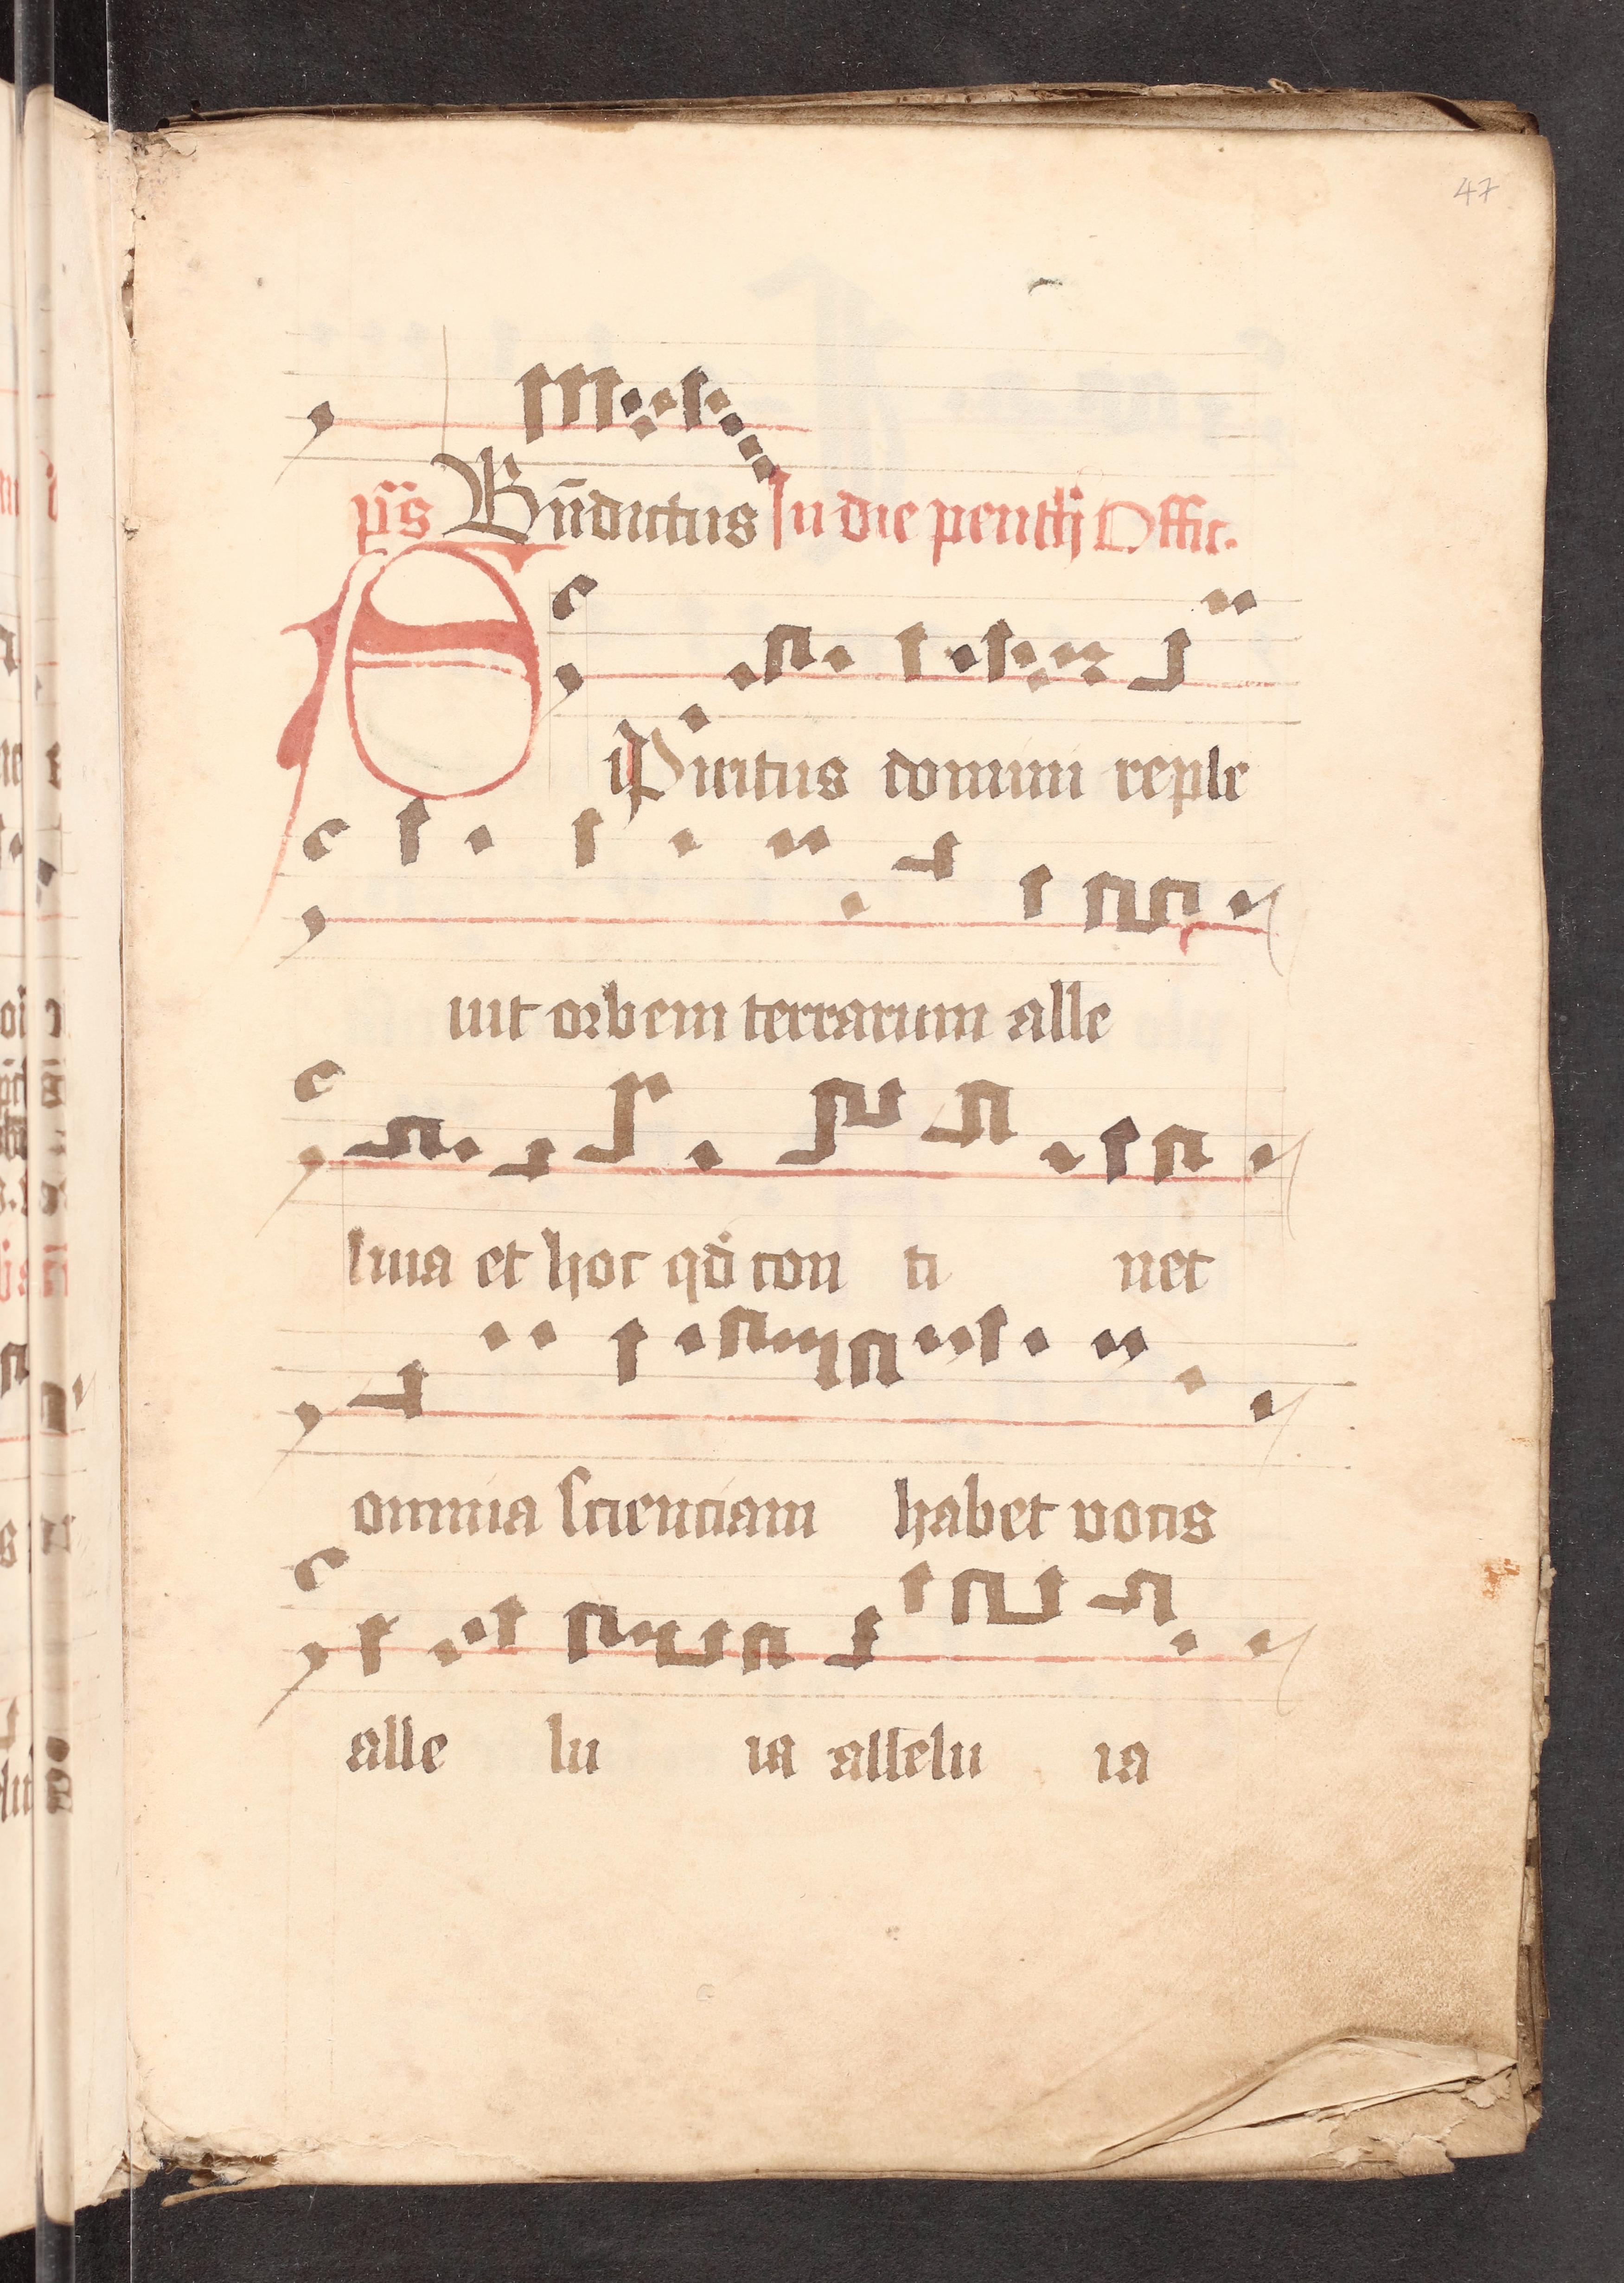 47
pͫs Bn̄dictus In die penthͨ Offic.
SPiritus domini reple
uit orbem terrarum alle
luia et hoc qd̉ con ti net
omnia scienciam habet vocis
alle lu ia allelu ia